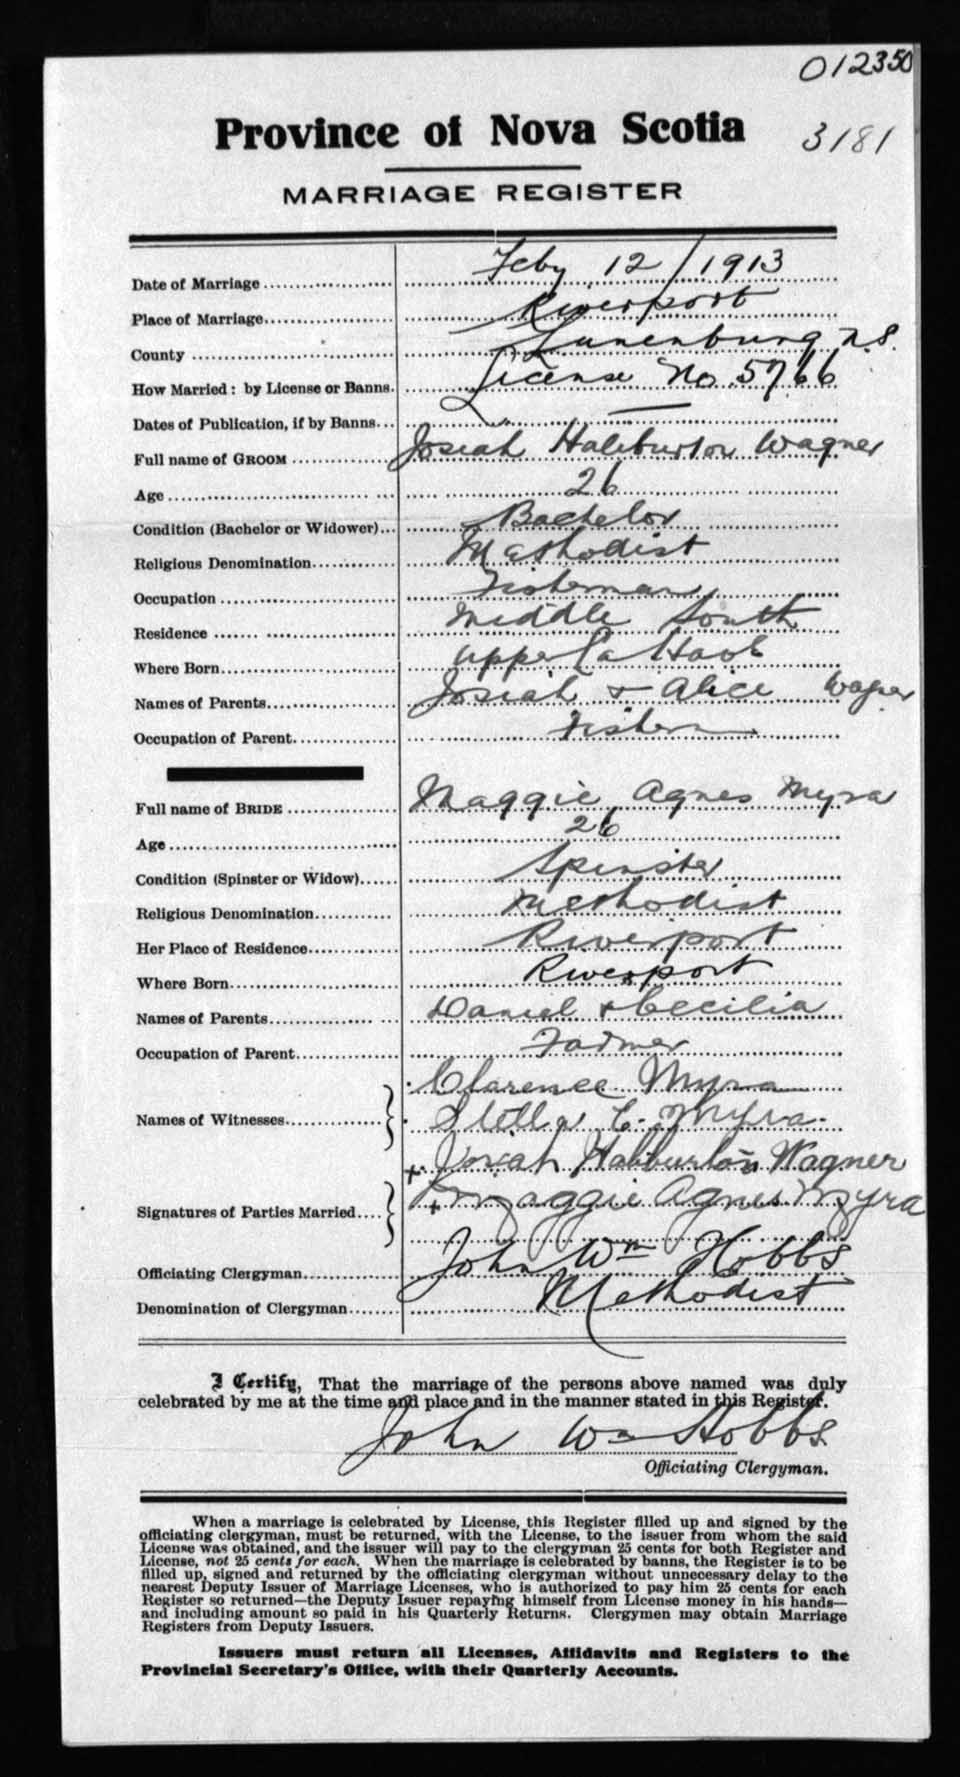 012350
Province of Nova Scotia
3181
MARRIAGE REGISTER
Date of Marriage Feby 12/1913
Place of Marriage Riverport
County Lunenburg N.S.
How Married: by License or Banns. License No. 5766
Dates of Publication, if by Banns —
Full name of GROOM Josiah Haliburton Wagner
Age 26
Condition (Bachelor or Widower) Bachelor
Religious Denomination Methodist
Occupation Fisherman
Residence Middle South
Where Born Upper La Have
Names of Parents Josiah & Alice Wagner
Occupation of Parent
Full name of BRIDE Maggie Agnes Myra
Age 26
Condition (Spinster or Widow) Spinster
Religious Denomination Methodist
Her Place of Residence Riverport
Where Born Riverport
Names of Parents Daniel & Cecilia
Occupation of Parent Farmer
Clarence Myra
Names of Witnesses Stella C. Myra.
+ Josiah Haliburton Wagner
+ Maggie Agnes Myra
Signatures of Parties Married
Officiating Clergyman John Wm Hobbs
Denomination of Clergyman Methodist
I Certify, That the marriage of the persons above named was duly
celebrated by me at the time and place and in the manner stated in this Register.
John Wm Hobbs
Officiating Clergyman.
When a marriage is celebrated by License, this Register filled up and signed by the
officiating clergyman, must be returned, with the License, to the issuer from whom the said
License was obtained, and the issuer will pay to the clergyman 25 cents for both Register and
License, not 25 cents for each. When the marriage is celebrated by banns, the Register is to be
filled up, signed and returned by the officiating clergyman without unnecessary delay to the
nearest Deputy Issuer of Marriage Licenses, who is authorized to pay him 25 cents for each
Register so returned—the Deputy Issuer repaying himself from License money in his hands—
and including amount so paid in his Quarterly Returns. Clergymen may obtain Marriage
Registers from Deputy Issuers.
Issuers must return all Licenses, Affidavits and Registers to the
Provincial Secretary's Office, with their Quarterly Accounts.